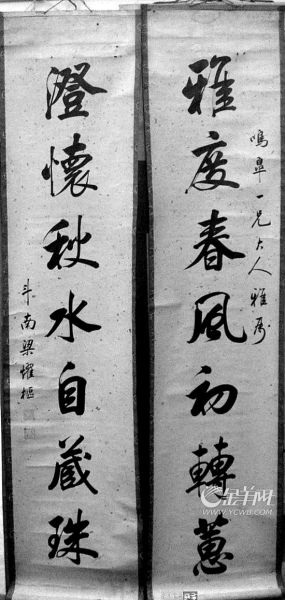 鳴皋一兄大人雅屬
雅度春風初轉蕙
澄懷秋水自藏珠
斗南梁耀樞
金羊网
WWW.YCWB.COM